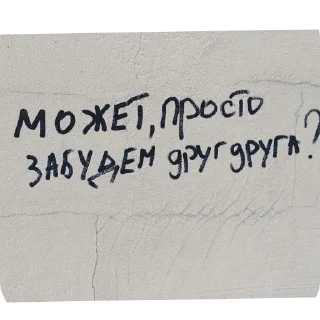 МОЖЕТ, ПРОСТО
ЗАБУДЕМ ДРУГ ДРУГА?